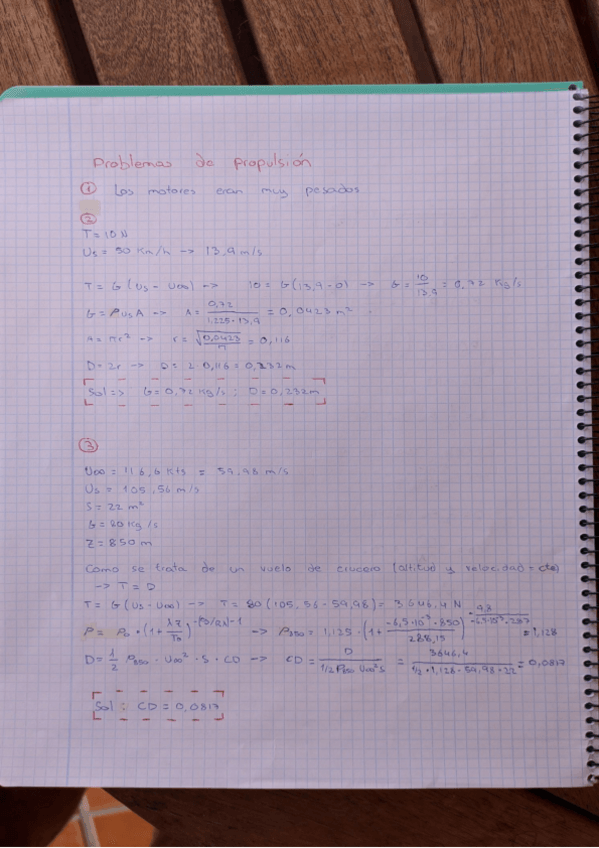 Problemas de propulsión
① Los motores eran muy pesados
②
T = 10 N
Us = 50 Km/h -> 13,9 m/s
T = G (Us - U∞) -> 10 = G (13,9 - 0) -> G = 10/13,9 = 0,72 Kg/s
G = ρ Us A -> A = 0,72/1,225·13,9 = 0,0423 m²
A = πr² -> r = √(0,0423/π) = 0,116
D = 2r -> D = 2·0,116 = 0,232 m
Sol => G = 0,72 Kg/s ; D = 0,232 m
③
U∞ = 116,6 Kts = 59,98 m/s
Us = 105,56 m/s
S = 22 m²
G = 80 Kg/s
Z = 850 m
Como se trata de un vuelo de crucero (altitud y velocidad = cte)
-> T = D
T = G (Us - U∞) -> T = 80 (105,56 - 59,98) = 3.646,4 N
= 1,128
D = 1/2 ρ850 · U∞² · S · CD -> CD = D/(1/2 ρ850 U∞² S) = 3646,4/(1/2 · 1,128 · 59,98 · 22) = 0,0817
Sol : CD = 0,0817